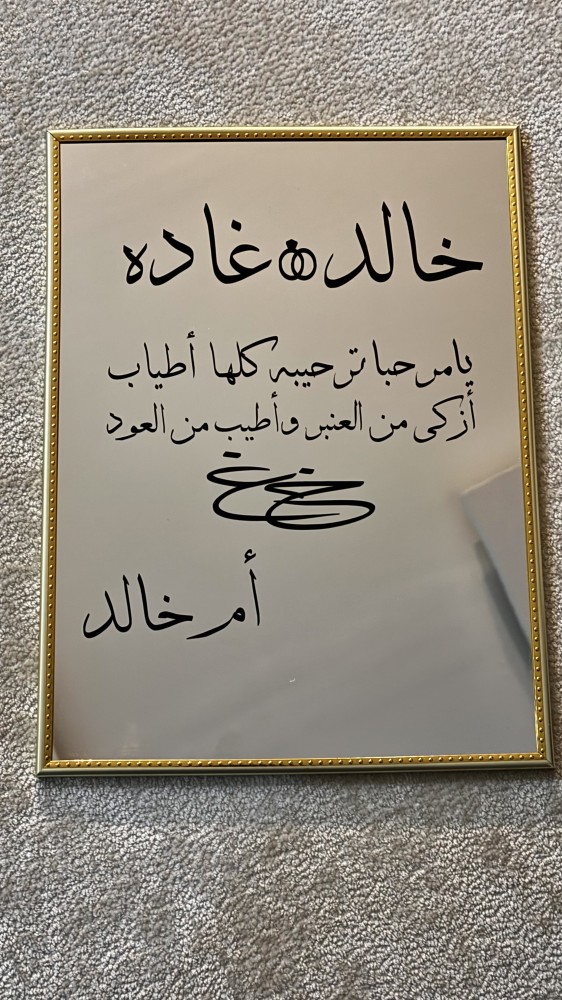 خالد غاده
يامرحبا ترحيبه كلها أطياب
أزكى من العنبر وأطيب من العود
خ غ
أم خالد